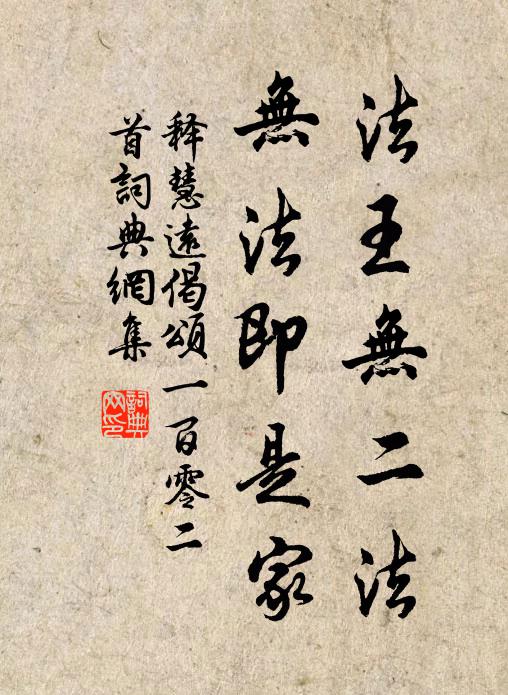 法王無二法
無法即是家
释慧遠偈頌一百零二
首詞典網集
詞典网印